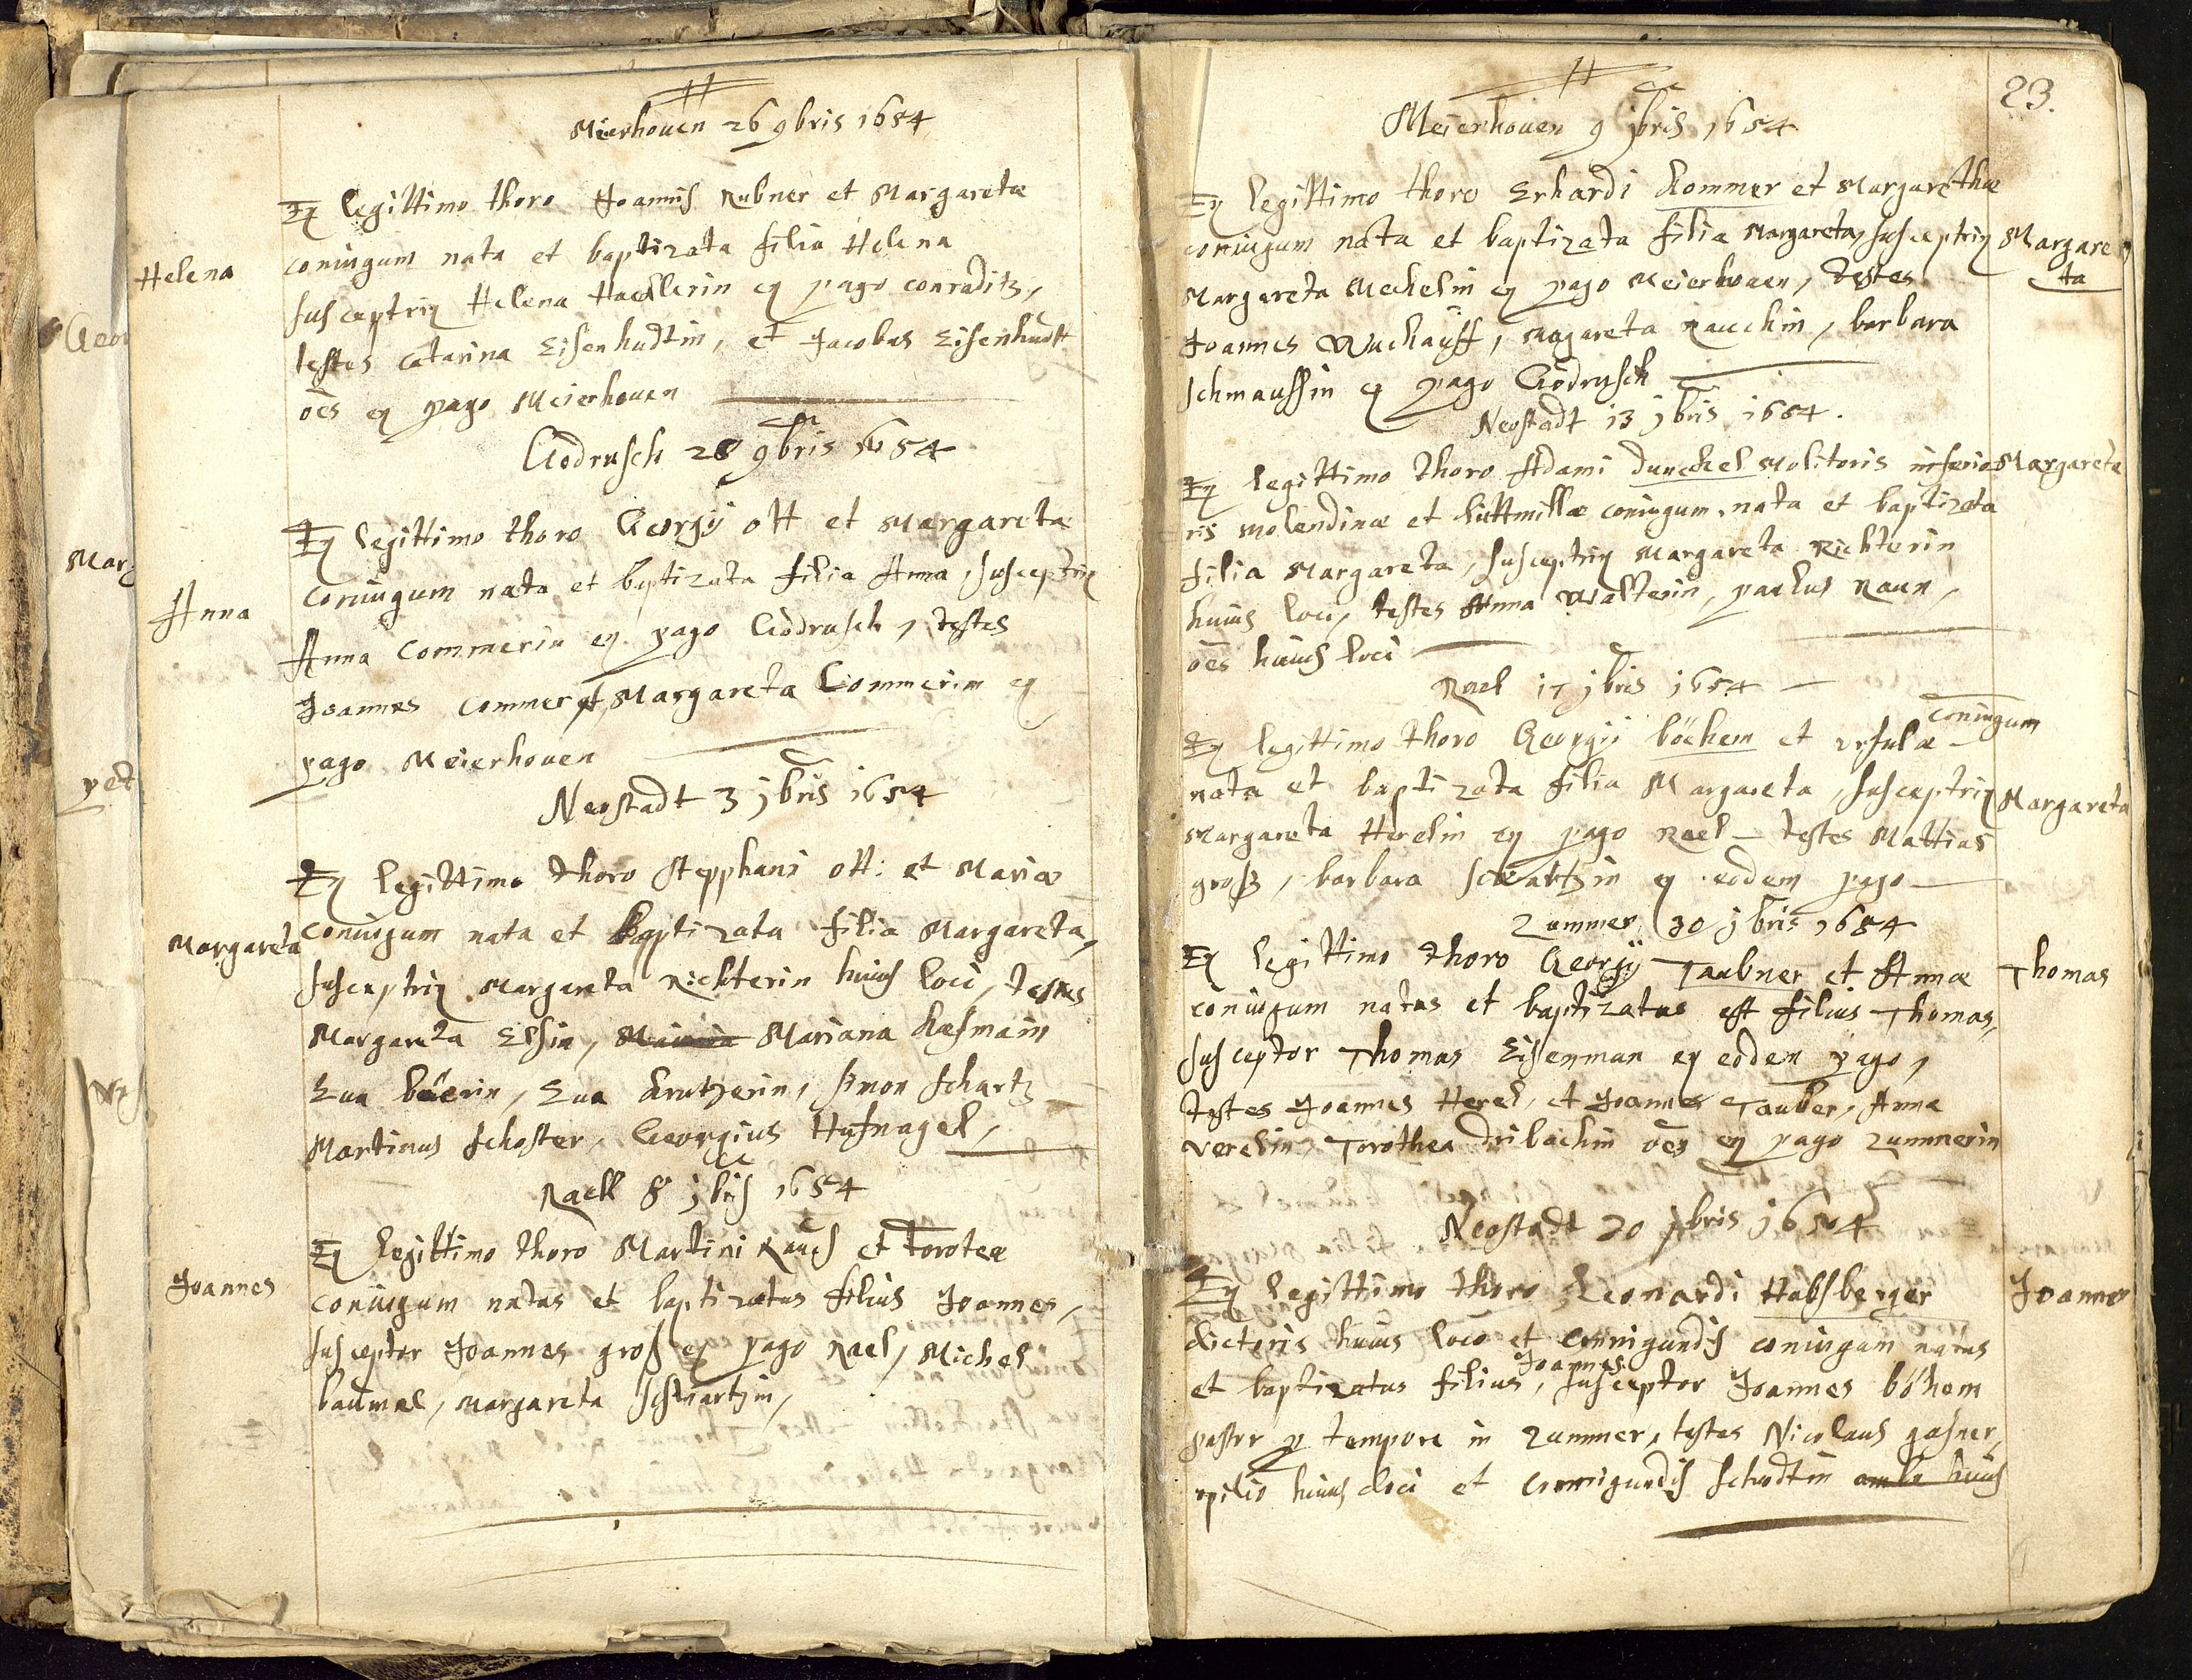 Meierhouen 26 9bris 1654
Ex legittimo thoro Joannis Rubner et Margaretæ
Helena
coniugum nata et baptizata filia Helena
susceptrix Helena Hacklerin ex pago conraditz,
testes Catarina Eisenhudtin, et Jacobus Eisenhudt
oēs ex pago Meierhouen
Godrusch 28 9bris 1654
Ex legittimo thoro Georgÿ ott et Margaretæ
Anna
coniugum nata et baptizata filia Anna, susceptrix
Anna Commerin ex pago Godrusch, testes
Joannes Commer et Margareta Commerin ex
pago Meierhouen
Neostadt 3 jbris 1654
Ex legittimo thoro Stepphani ott: et Mariæ
Margareta
coniugum nata et baptizata filia Margareta,
susceptrix Margareta Richterin huius loci, testes
Margareta Elsin, Mariana
Eua Eua Simon Schartz
Martinus Schoster, Georgius Hufnagel,
Raell 8 jbris 1654
Ex legittimo thoro Martini Rauch et Toroteæ
Joannes
coniugum natus et baptizatus filius Joannes,
susceptor Joannes groß ex pago Rael, Michel
baumel, Margareta Schwartzin,
23.
Meierhouen 9 jbris 1654
Ex legittimo thoro Erhardi Kommer et Margarethæ
coniugum nata et baptizata filia Margareta, susceptrix
Margare
ta
Margareta Meckelin ex pago Meierhouen, testes
Joannes Wuckauff, Margareta Rauchin, barbara
schmaussin ex pago Godrusch
Neostadt 13 jbris 1654.
Ex legittimo thoro Adami dunckel Molitoris inferio
Margareta
ris molendinæ et coniugum, nata et baptizata
filia Margareta, susceptrix Margareta Richterin
huius loci, testes Anna Walterin, paulus Raun,
oēs huius loci
Rael 17 jbris 1654
coniugum
Ex legittimo thoro Georgij böehem et vrsulæ
nata et baptizata filia Margareta, susceptrix
Margareta
Margareta Herelin ex pago Rael testes Mattias
groß, barbara ex eodem pago
Zummer 30 jbris 1654
Ex legittimo thoro Georgÿ Taubner et Annæ
Thomas
coniugum natus et baptizatus est filius Thomas,
susceptor Thomas Eisenman ex eodem pago,
testes Joannes Herel, et Joannes Tauber, Anna
verelin, Torothea Dribachin oēs ex pago Zummerin
Neostadt 20 jbris 1654
Ex legittimo thoro Leonardi Habsberger
Joannes
dictoris huius loco et Connigundis coniugum natus
Joannes
et baptizatus filius, susceptor Joannes böhem
pastor p tempore in Zummer, testes Nicolaus gasner,
opilio huius loci et Connigundis Schudtin huius